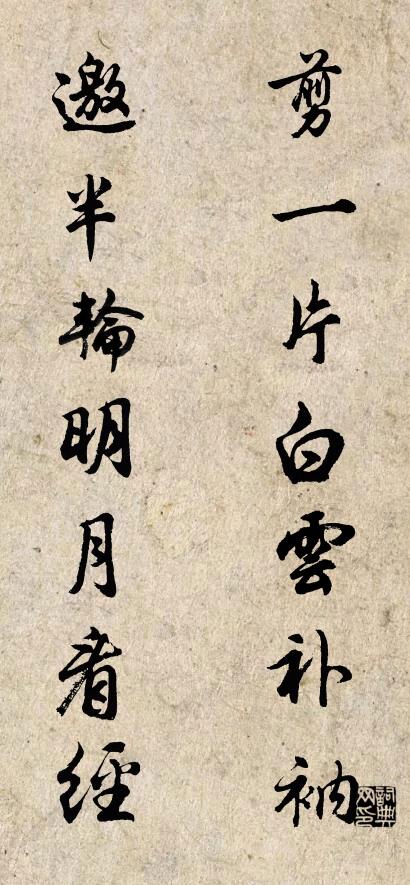 剪一片白雲补衲
邀半輪明月看經
詞典网印